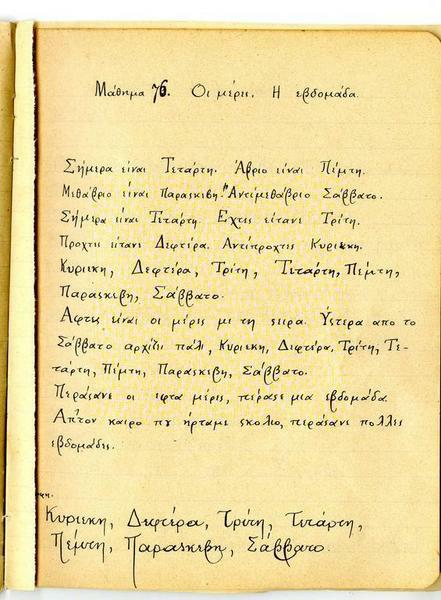 Μάθημα 76. Οι μέρες. Η εβδομάδα.
Σήμερα είναι Τετάρτη. Άβριο είναι Πέμτη.
Μεθάβριο είναι Παρασκεβη. Αντιμεθάβριο Σάββατο.
Σήμερα είναι Τετάρτη. Εχτες είτανε Τρίτη.
Προχτες είτανε Δεφτέρα. Αντίπροχτες Κυριεκη.
Κυριεκη, Δεφτέρα, Τρίτη, Τετάρτη, Πέμτη,
Παρασκεβη, Σάββατο.
Αφτες είναι οι μέρες με τη σειρα. Υστερα απο το
Σάββατο αρχίζει πάλι, Κυριεκη, Δεφτέρα, Τρίτη, Τε-
τάρτη, Πέμτη, Παρασκεβη, Σάββατο.
Περάσανε οι εφτα μέρες, πέρασε μια εβδομάδα.
Απ'τον καιρο πυ ήρταμε σκολιο, περάσανε πολλες
εβδομάδες.
Κυριεκη, Δεφτέρα, Τρίτη, Τετάρτη,
Πέμτη, Παρασκεβη, Σάββατο.